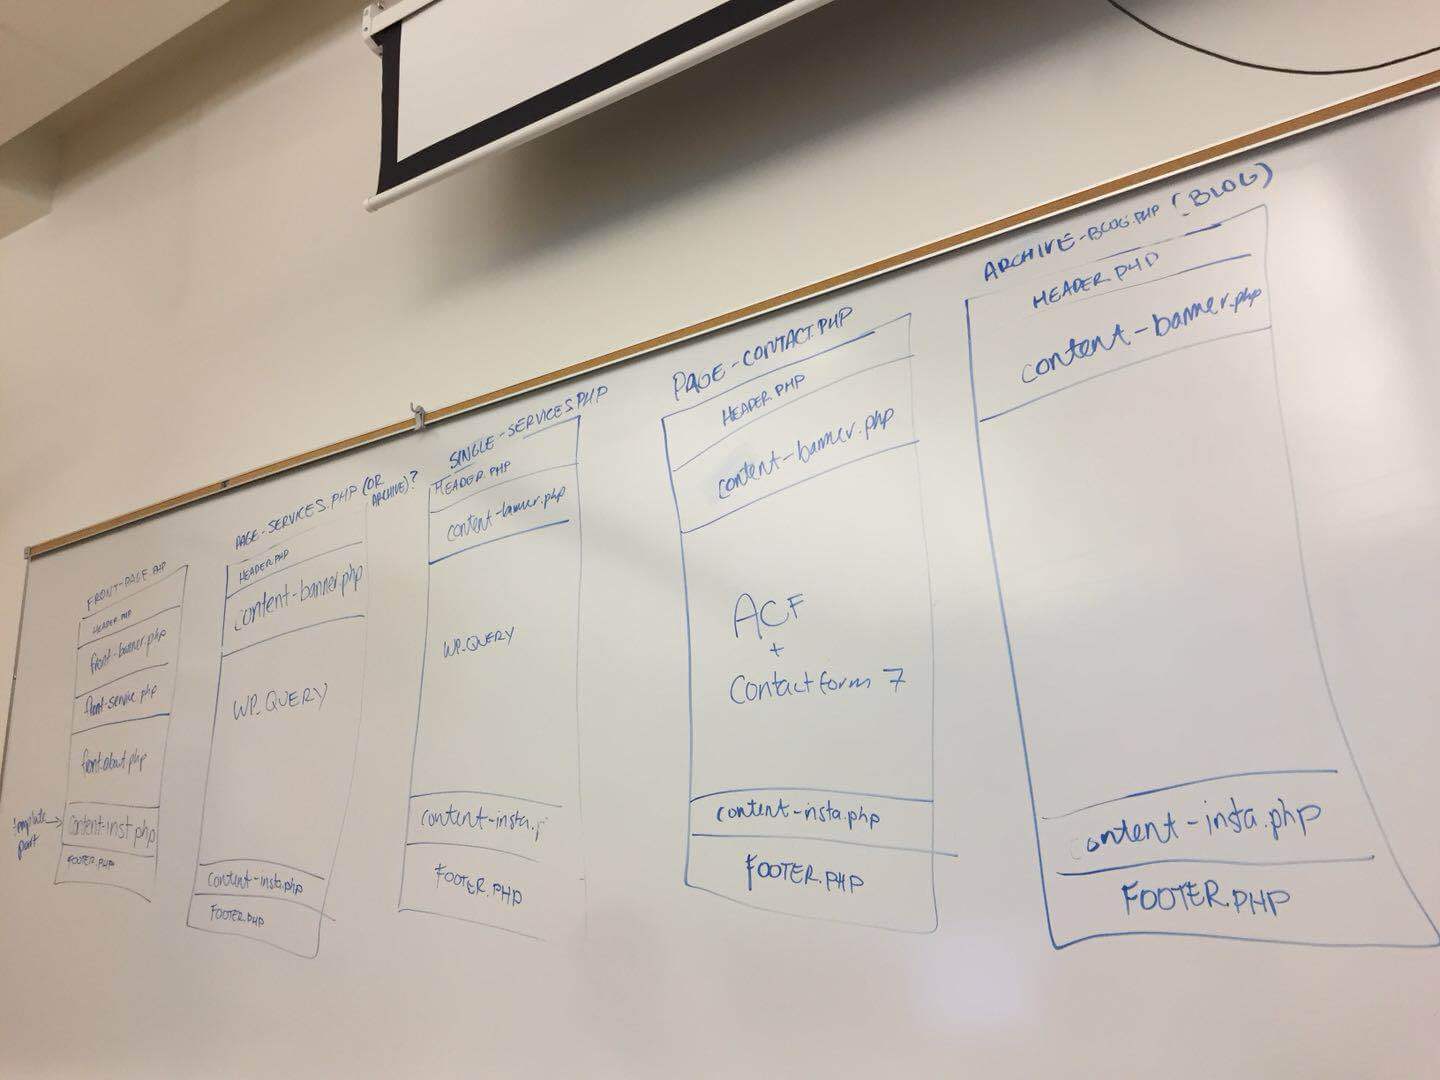 FRONT-PAGE.PHP
HEADER.PHP
front-banner.php
front-service.php
front-about.php
template part →
content-inst.php
FOOTER.PHP
PAGE-SERVICES.PHP (OR ARCHIVE)?
HEADER.PHP
content-banner.php
WP_QUERY
content-insta.php
FOOTER.PHP
SINGLE-SERVICES.PHP
HEADER.PHP
content-banner.php
WP_QUERY
content-insta.p
FOOTER.PHP
PAGE-CONTACT.PHP
HEADER.PHP
content-banner.php
ACF
+
Contact form 7
content-insta.php
FOOTER.PHP
ARCHIVE-BLOG.PHP (BLOG)
HEADER.PHP
content-banner.php
content-insta.php
FOOTER.PHP